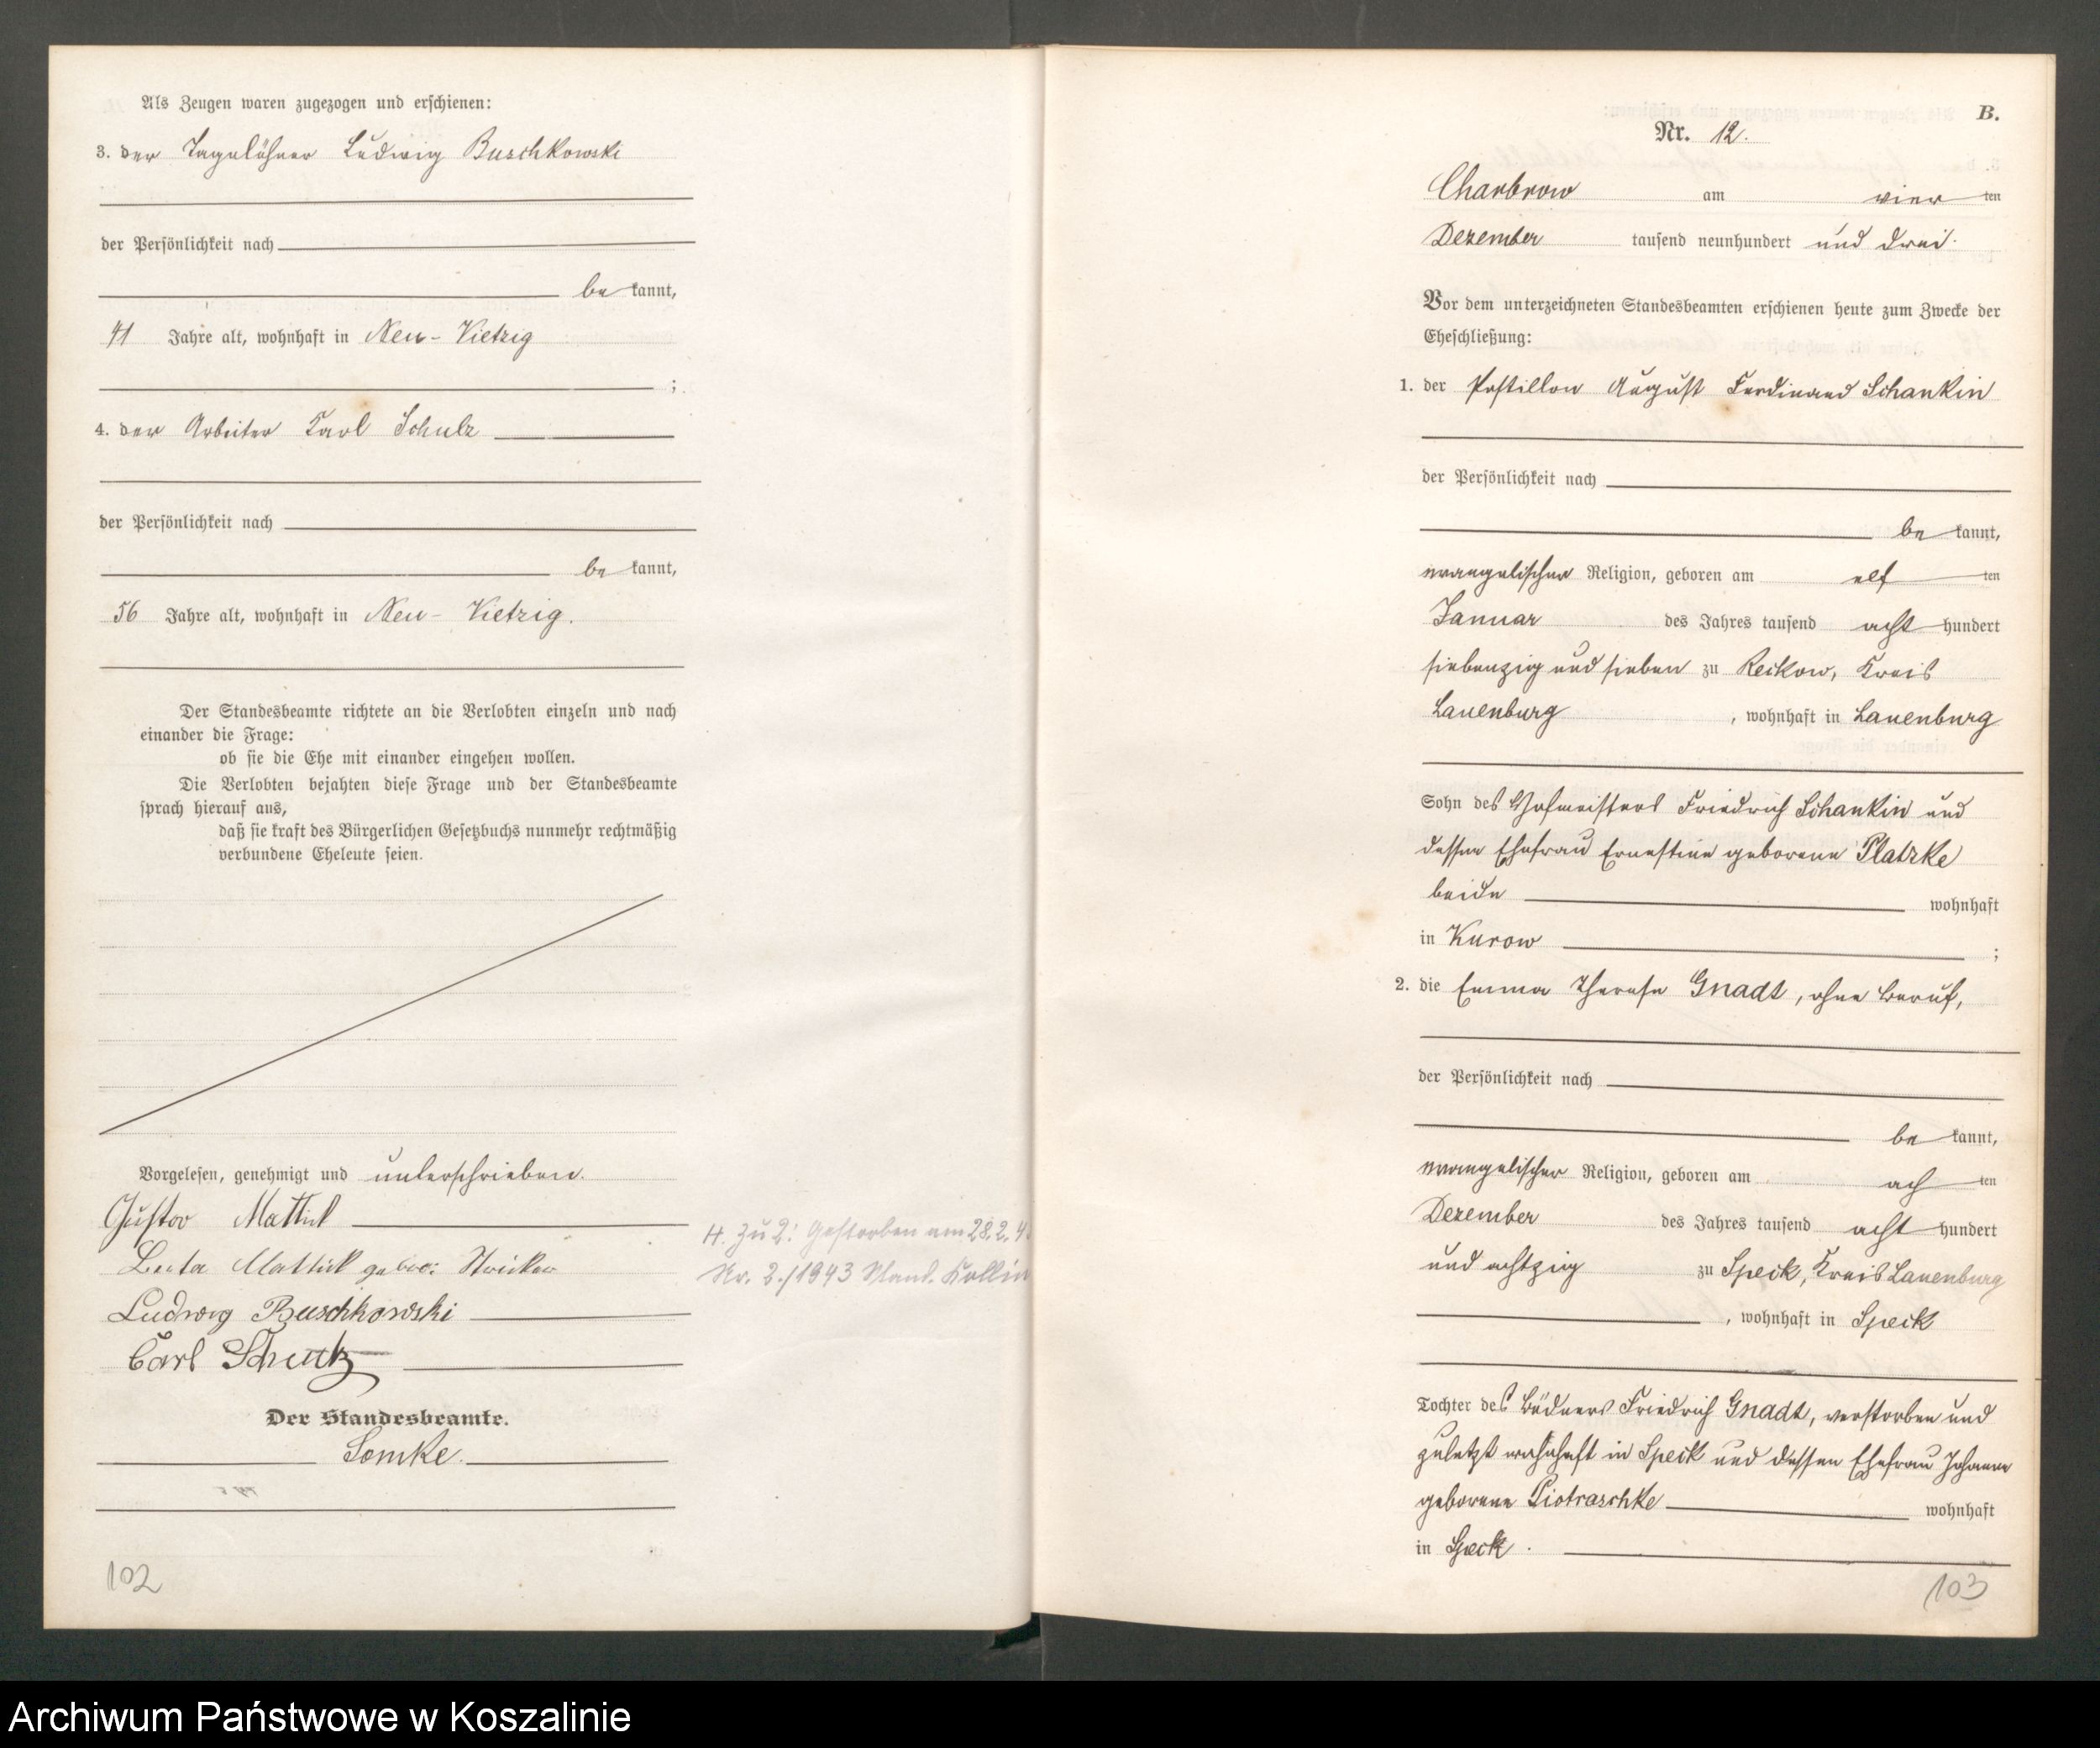 Als Zeugen waren zugezogen und erschienen:
3. der Tagelöhner Ludwig Buschkowski
der Persönlichkeit nach
be kannt,
41 Jahre alt, wohnhaft in Neu-Vietzig
;
4. der Arbeiter Karl Schulz
der Persönlichkeit nach
be kannt,
56 Jahre alt, wohnhaft in Neu-Vietzig.
Der Standesbeamte richtete an die Verlobten einzeln und nach
einander die Frage:
ob sie die Ehe mit einander eingehen wollen.
Die Verlobten bejahten diese Frage und der Standesbeamte
sprach hierauf aus,
daß sie kraft des Bürgerlichen Gesetzbuchs nunmehr rechtmäßig
verbundene Eheleute seien.
Vorgelesen, genehmigt und unterschrieben.
Gustav Mattick
Mattick
Ludwig Buschkowski
Carl Schulz
Der Standesbeamte.
Lemke.
H. Zu 2: Gestorben am 28.2.4
Nr. 2./1943 Stand.
102
B.
Nr. 12.
Charbrow am vier ten
Dezember tausend neunhundert und drei.
Vor dem unterzeichneten Standesbeamten erschienen heute zum Zwecke der
Eheschließung:
1. der Postillon August Ferdinand Schankin
der Persönlichkeit nach
be kannt,
evangelischer Religion, geboren am elf ten
Januar des Jahres tausend acht hundert
siebenzig und sieben zu Reckow, Kreis
Lauenburg , wohnhaft in Lauenburg
Sohn des Hofmeisters Friedrich Schankin und
dessen Ehefrau Ernestine geborene Platzke
beide wohnhaft
in Kurow ;
2. die Emma Therese Gnadt, ohne Beruf,
der Persönlichkeit nach
be kannt,
evangelischer Religion, geboren am ach ten
Dezember des Jahres tausend acht hundert
und achtzig zu Speck, Kreis Lauenburg
, wohnhaft in Speck
Tochter des Büdners Friedrich Gnadt, verstorben und
zuletzt wohnhaft in Speck und dessen Ehefrau Johanne
geborene Piotraschke wohnhaft
in Speck.
103
Archiwum Państwowe w Koszalinie